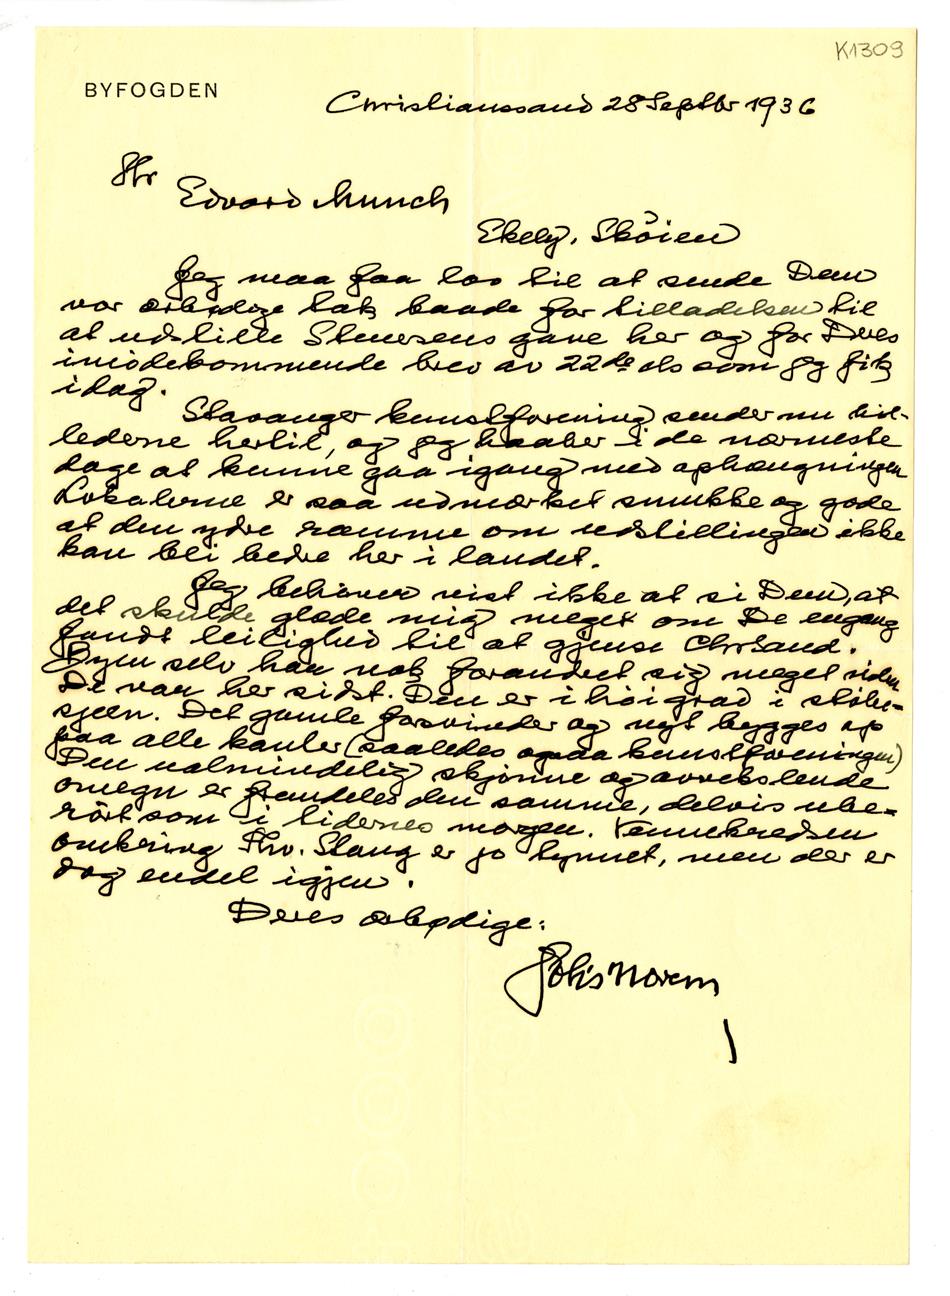 K1309
BYFOGDEN
Christianssand 28 Septbr 1936
Hr
Edvard Munch
Ekely, Sköien
Jeg maa faa lov til at sende Dem
vor ærbødige tak baade for tilladelsen til
at udstille Stenersens gave her og for Deres
imödekommende brev av 22de ds som jeg fik
idag.
Stavanger kunstforening sender nu bil-
lederne hertil, og jeg haaber i de nærmeste
dage at kunne gaa igang med ophængningen
Lokalerne er saa udmærket smukke og gode
at den ydre ramme om udstillingen ikke
kan bli bedre her i landet.
Jeg behöver vist ikke at si Dem, at
det skulde glæde mig meget om De engang
fandt leilighed til at gjense Chrsand.
Byen selv har nok forandret sig meget siden
De var her sidst. Den er i höi grad i stöbe-
skeen. Det gamle forsvinder og nyt bygges op
paa alle kanter (saaledes ogsaa kunstforeningen)
Den ualmindelig skjönne og avvekslende
omegn er fremdeles den samme, delvis ube-
rört som i tidernes morgen. Vennekredsen
omkring Thv. Stang er jo tynnet, men der er
dog endel igjen.
Deres ærbødige: